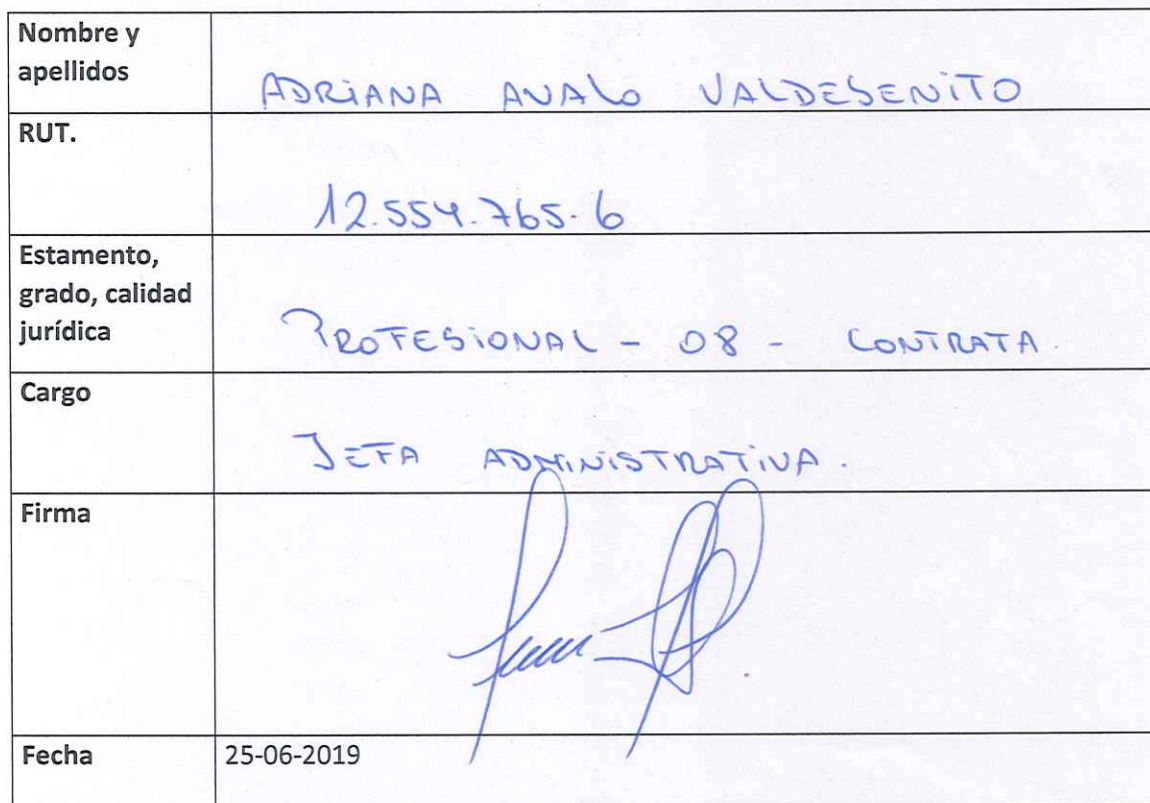 Nombre y
apellidos
ADRIANA AVALO VALDEBENITO
RUT.
12.554.765-6
Estamento,
grado, calidad
jurídica
PROFESIONAL - 08 - CONTRATA.
Cargo
JEFA ADMINISTRATIVA.
Firma
Fecha
25-06-2019